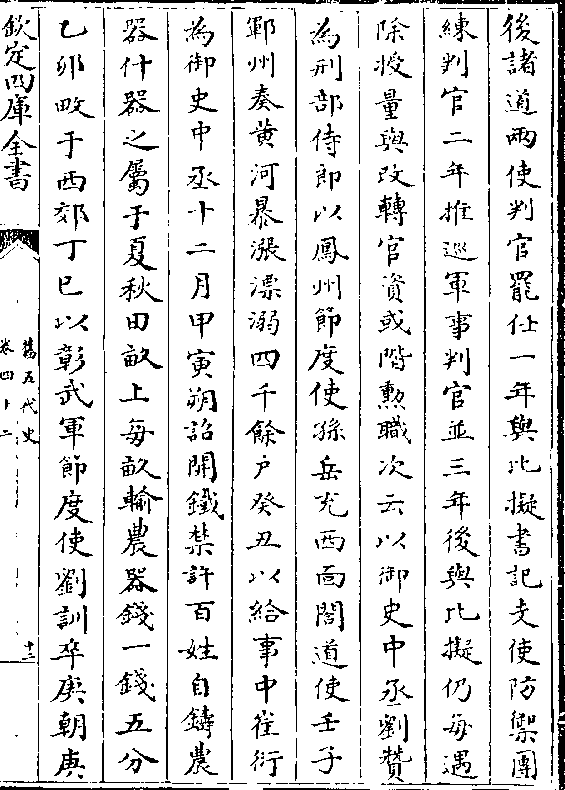 後諸道兩使判官罷任一年與比擬書記支使防禦團
練判官二年推巡軍事判官並三年後與比擬仍每遇
除授量與改轉官資或階勲職次云以御史中丞劉賛
為刑部侍郎以鳳州節度使孫岳充西面閤道使壬子
鄆州奏黄河暴漲漂溺四千餘户癸丑以給事中崔衍
為御史中丞十二月甲寅朔詔開鐵禁許百姓自鑄農
器什器之屬于夏秋田畝上每畝輸農器錢一錢五分
乙卯畋于西郊丁巳以彰武軍節度使劉訓卒庚朝庚
欽定四庫全書
舊五代史
卷四十二
十三